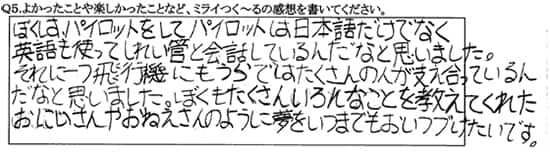 Q5.よかったことや楽しかったことなど、ミライつく～るの感想を書いてください。
ぼくは、パイロットをしてパイロットは日本語だけでなく
英語も使ってしれい管と会話しているんだなと思いました。
それに一つ飛行機にもうらではたくさんの人が支え合っているん
だなと思いました。ぼくもたくさんいろんなことを教えてくれた
おにいさんやおねえさんのように夢をいつまでもおいつづけたいです。